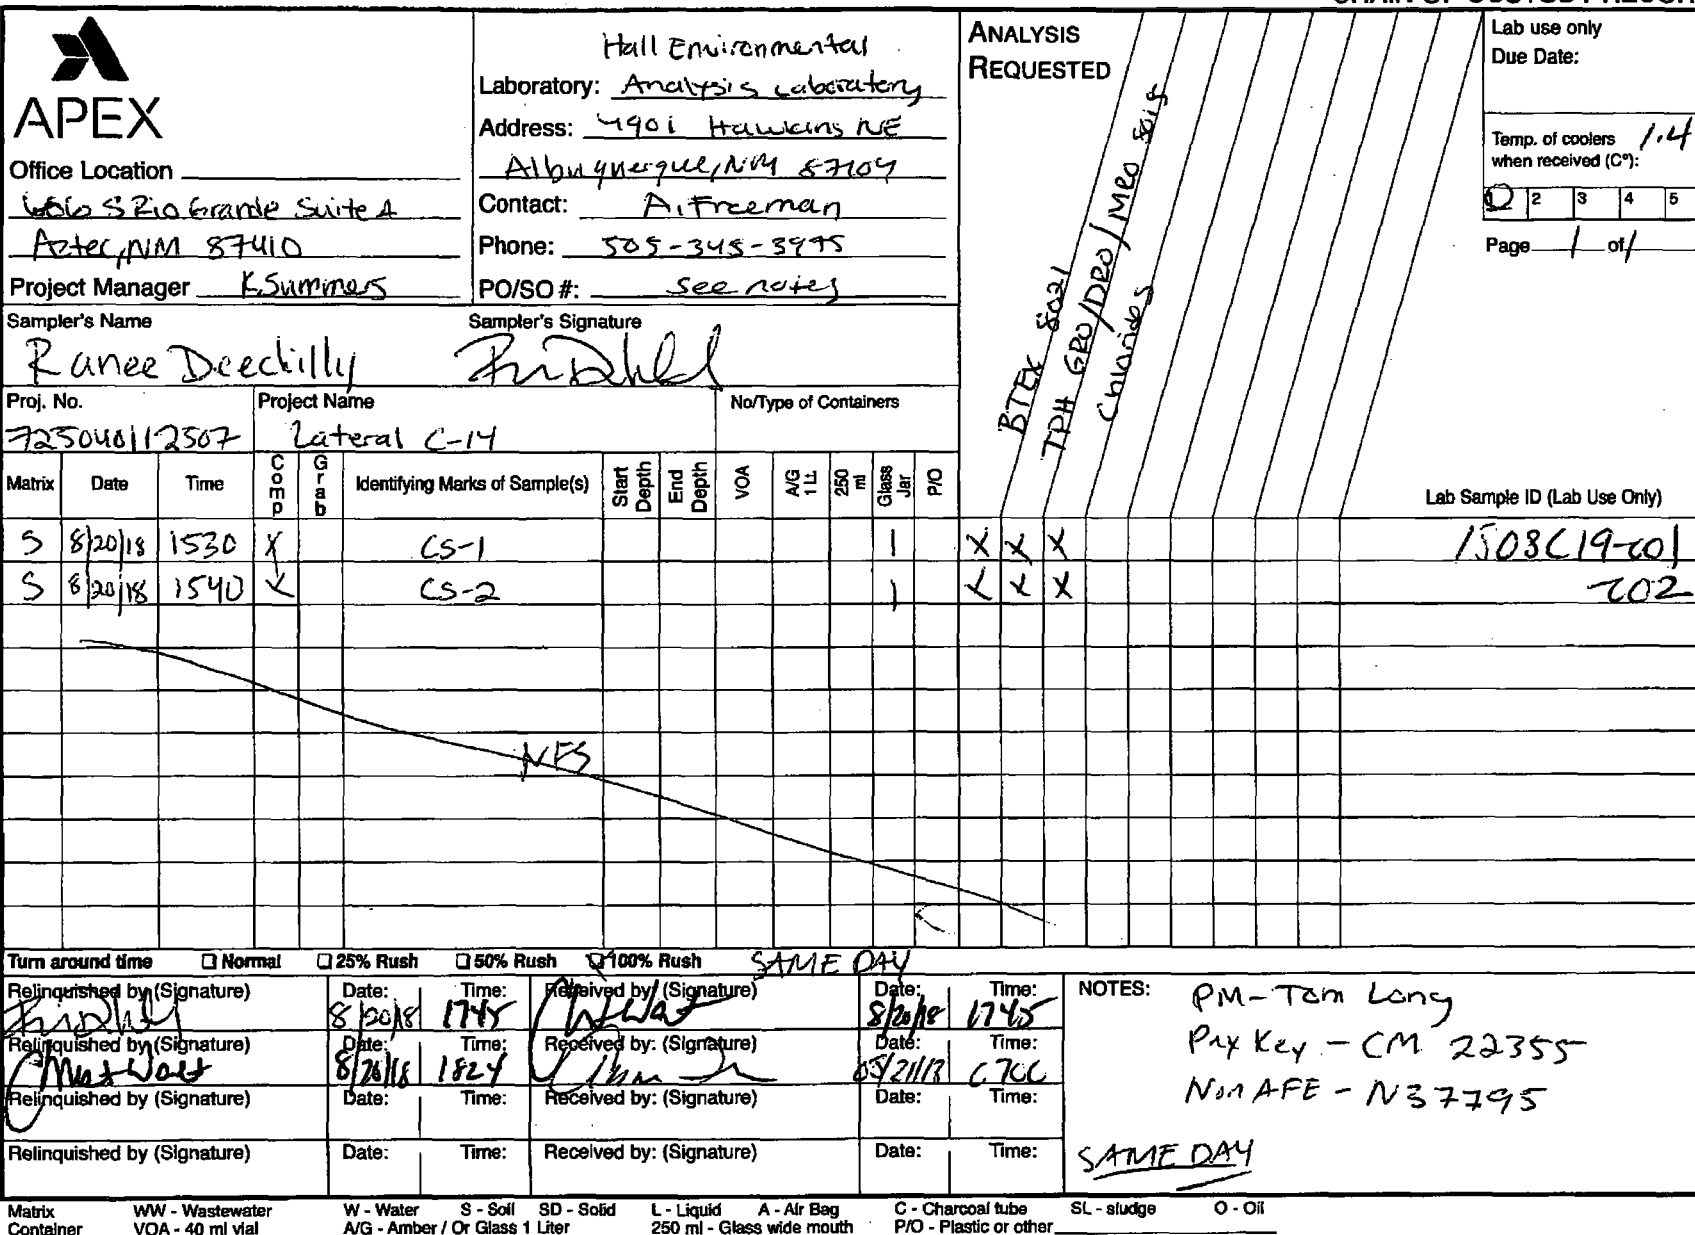 APEX
Office Location
606 S Rio Grande Suite A
Aztec, NM 87410
Project Manager K. Summers
Hall Environmental
Laboratory: Analysis Laboratory
Address: 4901 Hawkins NE
Albuquerque, NM 87109
Contact: A. Freeman
Phone: 505-345-3975
PO/SO #: See notes
ANALYSIS
REQUESTED
BTEX 8021
TPH GRO/DRO/MRO 8015
Chlorides
Lab use only
Due Date:
Temp. of coolers 1.4
when received (C°):
1 2 3 4 5
Page 1 of 1
Sampler's Name
Ranee Deechilly
Sampler's Signature
Proj. No.
725040112507
Project Name
Lateral C-14
No/Type of Containers
Matrix Date Time Comp Grab Identifying Marks of Sample(s) Start Depth End Depth VOA A/G 1 Lt. 250 ml Glass Jar P/O Lab Sample ID (Lab Use Only)
S 8/20/18 1530 X CS-1 1 X X X 1808C19-001
S 8/20/18 1540 X CS-2 1 X X X -002
NFS
Turn around time Normal 25% Rush 50% Rush 100% Rush SAME DAY
Relinquished by (Signature) Date: 8/20/18 Time: 1745 Received by: (Signature) Date: 8/20/18 Time: 1745
Relinquished by (Signature) Date: 8/20/18 Time: 1824 Received by: (Signature) Date: 08/21/18 Time: 0700
Relinquished by (Signature) Date: Time: Received by: (Signature) Date: Time:
Relinquished by (Signature) Date: Time: Received by: (Signature) Date: Time:
NOTES: PM - Tom Long
Pay Key - CM 22355
Non AFE - N37795
SAME DAY
Matrix WW - Wastewater W - Water S - Soil SD - Solid L - Liquid A - Air Bag C - Charcoal tube SL - sludge O - Oil
Container VOA - 40 ml vial A/G - Amber / Or Glass 1 Liter 250 ml - Glass wide mouth P/O - Plastic or other